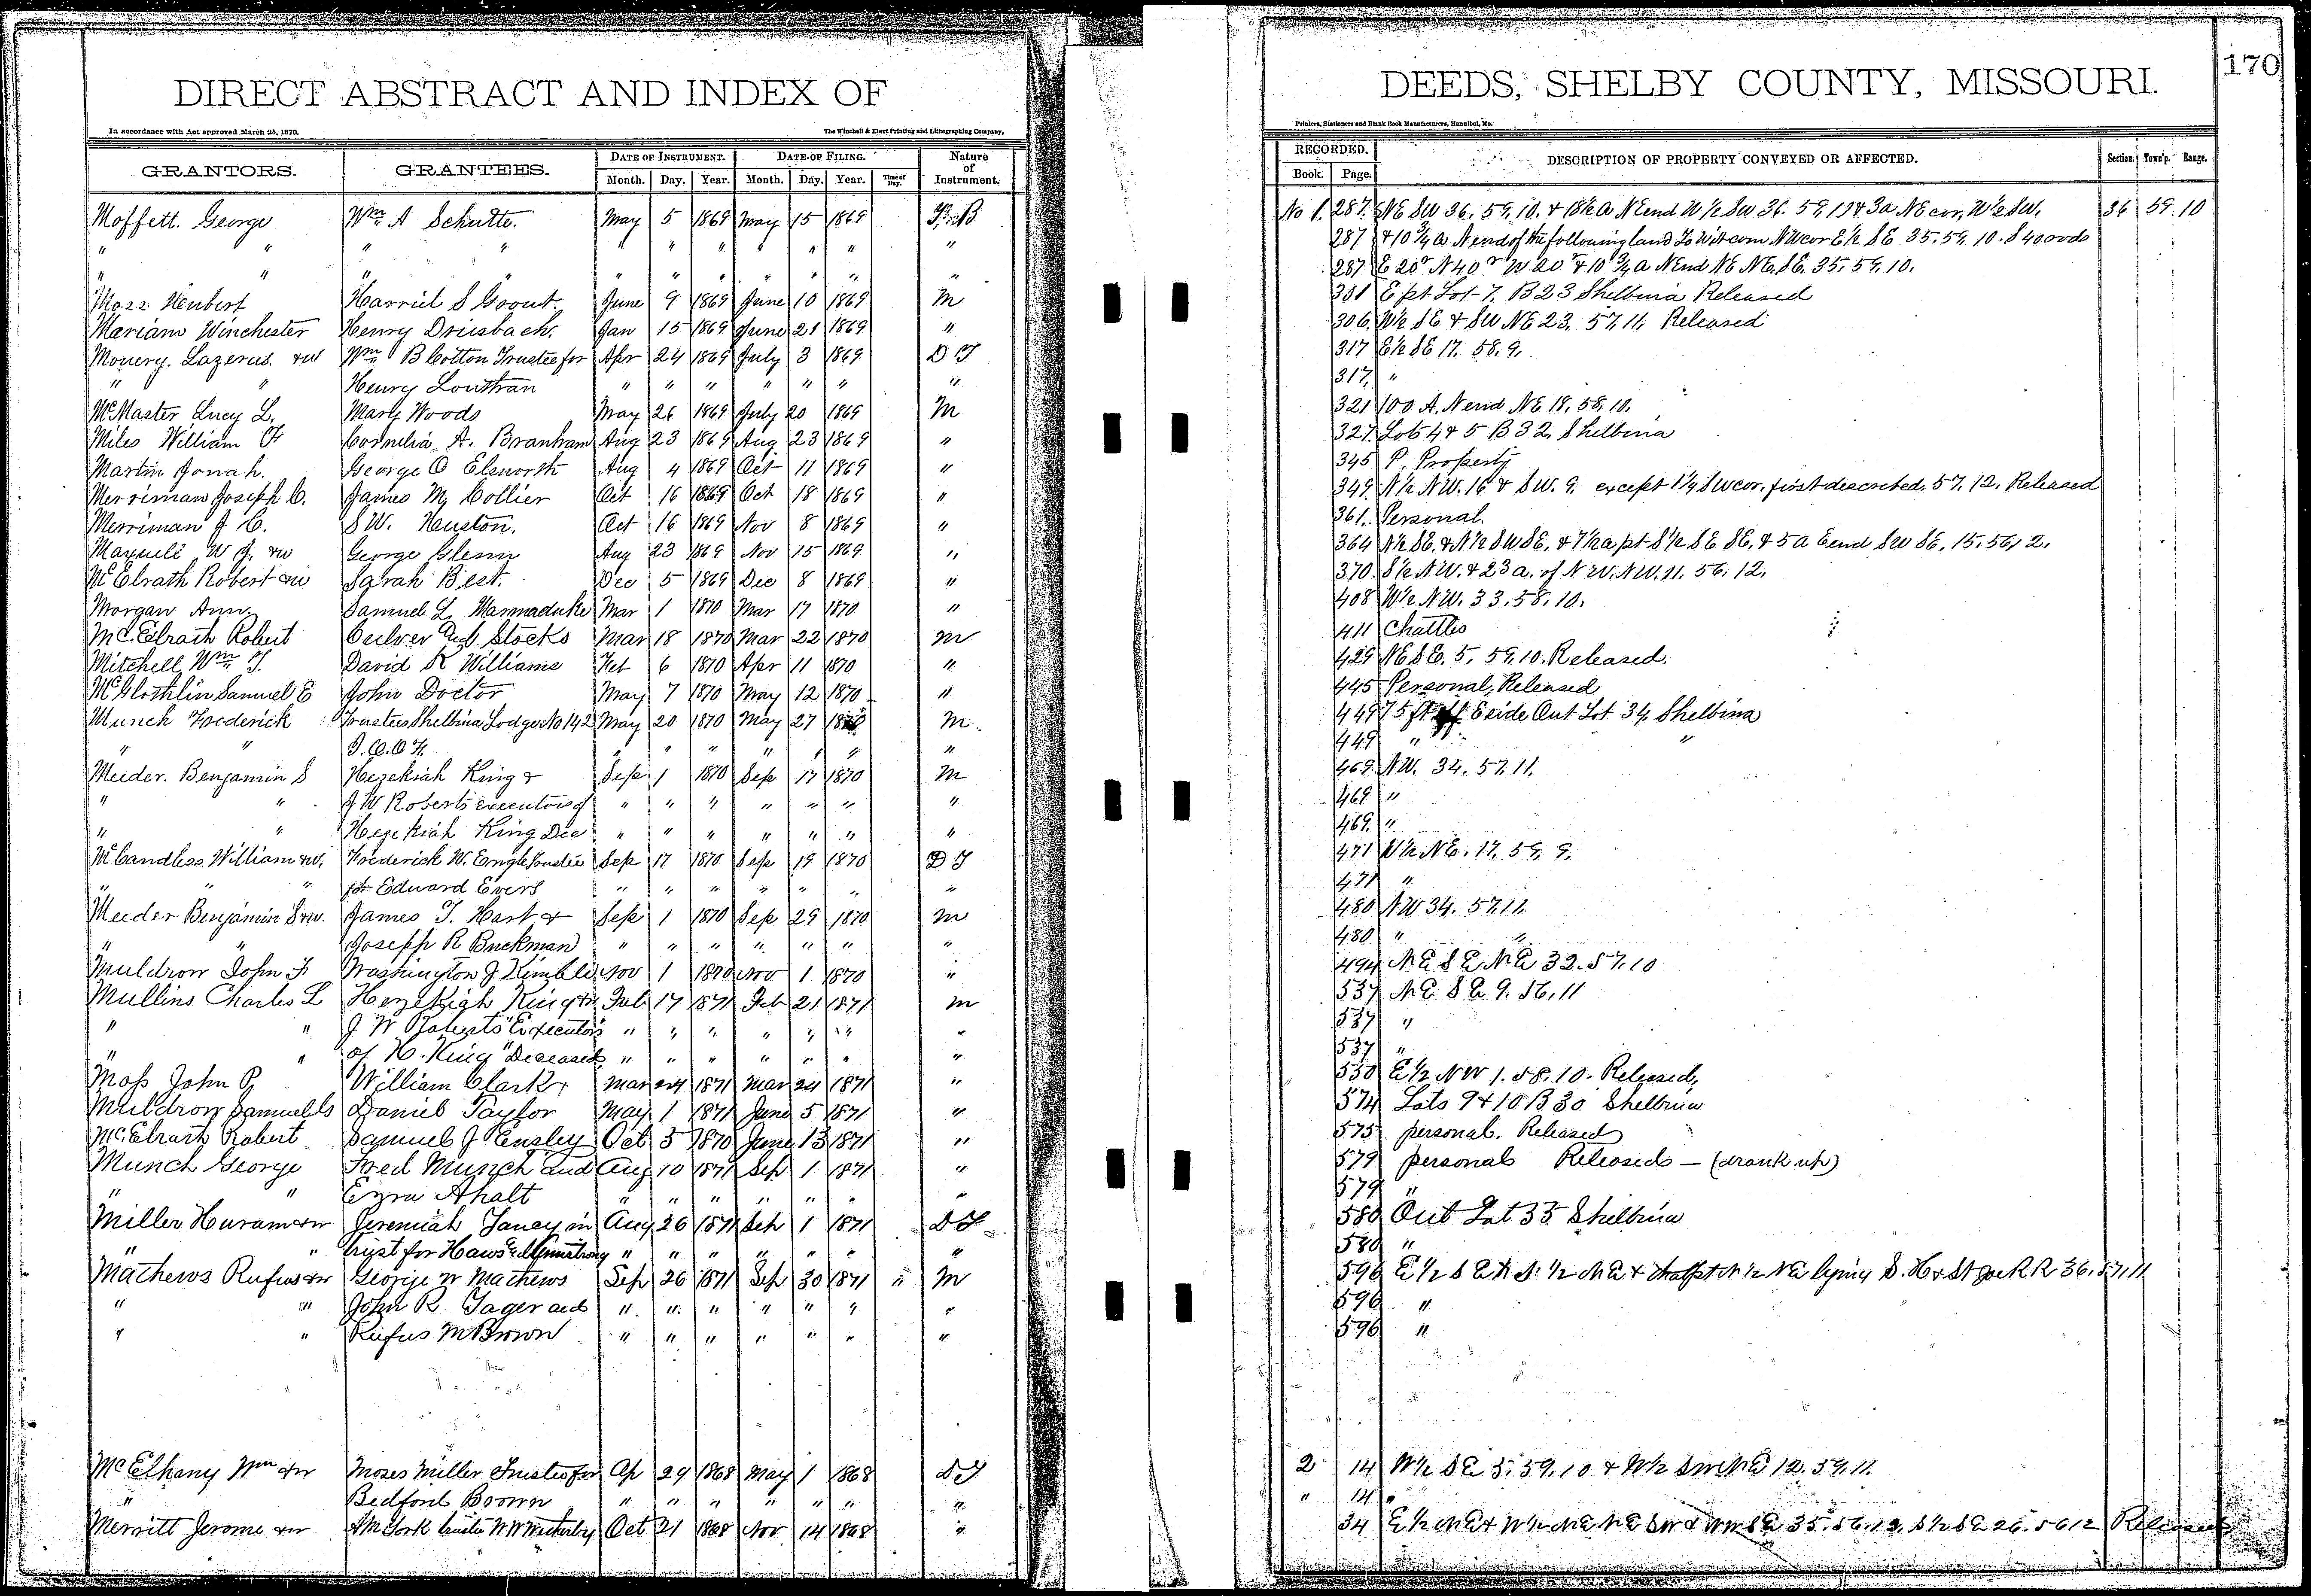 DIRECT ABSTRACT AND INDEX OF
In accordance with Act approved March 25, 1870. The Winchell & Ebert Printing and Lithographing Company,
GRANTORS. GRANTEES. DATE OF INSTRUMENT. DATE OF FILING. Nature of Instrument.
Month. Day. Year. Month. Day. Year. Time of Day.
Moffett. George Wm A Schutte. May 5 1869 May 15 1869
" " " " " " " " " " "
" " " " " " " " " " "
Moss Henbert Harriet S Grout. June 9 1869 June 10 1869 M
Mariam Winchester Henry Driesbach. Jan 15 1869 June 21 1869 "
Mouery. Lazerus. &w Wm B Cotton Trustee for Apr 24 1869 July 3 1869 D T
" " Henry Louthan " " " " " " "
McMaster Lucy L. Mary Woods May 26 1869 July 20 1869 M
Miles William F Cornelia A. Branham Aug 23 1869 Aug 23 1869 "
Martin Jonah. George O Elsworth Aug 4 1869 Oct 11 1869 "
Merriman Joseph C. James M Collier Oct 16 1869 Oct 18 1869 "
Merriman J C. S W. Heuston. Oct 16 1869 Nov 8 1869 "
Maxwell W J. &w George Glenn Aug 23 1869 Nov 15 1869 "
McElrath Robert &w Sarah Best. Dec 5 1869 Dec 8 1869 "
Morgan Ann. Samuel L Marmaduke Mar 1 1870 Mar 17 1870 "
McElrath Robert Culver and Stocks Mar 18 1870 Mar 22 1870 M
Mitchell Wm T. David K Williams Feb 6 1870 Apr 11 1870 "
McGlothlin Samuel E John Doctor May 7 1870 May 12 1870 "
Munch Frederick Trustees Shelbina Lodge No 142 May 20 1870 May 27 1870 M.
" " I.O.O.F. " " " " " " "
Meeder. Benjamin S Hezekiah King & Sep 1 1870 Sep 17 1870 M
" " J W Roberts executors of " " " " " " "
" " Hezekiah King Dec " " " " " " "
McCandless William &w. Frederick W. Engle Trustee Sep 17 1870 Sep 19 1870 D T
" " " for Edward Evers " " " " " " "
Meeder Benjamin S &w. James T. Hart & Sep 1 1870 Sep 29 1870 M
" " Joseph R Buckman " " " " " " "
Muldrow John F Washington J Kimble Nov 1 1870 Nov 1 1870 "
Mullins Charles L Hezekiah King &  Feb 17 1871 Feb 21 1871 M
" " J W Roberts "Executors " " " " " " "
" " of H. King "Deceased " " " " " " "
Moss John P William Clark Mar 24 1871 Mar 24 1871 "
Muldrow Samuel S Daniel Taylor May 1 1871 June 5 1871 "
McElrath Robert Samuel J Ensley Oct 5 1870 June 13 1871 "
Munch George Fred Munch and Aug 10 1871 Sep 1 1871 "
" " Ezra Ahalt " " " " " " "
Miller Huram &w Jeremiah Janey in Aug 26 1871 Sep 1 1871 D T
" " trust for Haws Armstrong " " " " " " "
Mathews Rufus &w George W Mathews Sep 26 1871 Sep 30 1871 " M
" " John R Tager and " " " " " " "
" " Rufus M Brown " " " " " " "
McElhany Wm &w Moses Miller Trustee for Ap 29 1868 May 1 1868 D T
" Bedford Brown " " " " " " "
Merritt Jerome &w A M York trustee W W Weatherby Oct 21 1868 Nov 14 1868 "
DEEDS, SHELBY COUNTY, MISSOURI. 170
Printers, Stationers and Blank Book Manufacturers, Hannibal, Mo.
RECORDED. DESCRIPTION OF PROPERTY CONVEYED OR AFFECTED. Section. Town'p. Range.
Book. Page.
No 1. 287. NE SW 36. 59. 10. & 18½ a N end W ½ SW 36. 59, 10 & 3a NE cor, W½ SW. 36 59 10
287 & 10 ¾ a N end of the following land To Wit com NW cor E½ SE 35. 59. 10. S 40 rods
287 E 20r N 40r W 20r & 10 ¾ a N end NE NE. SE. 35. 59. 10.
301 E pt Lot 7. B 23 Shelbina Released
306. W½ SE & SW NE 23. 57. 11. Released
317 E½ SE 17. 58. 9.
317. "
321 100 A. N end NE 18. 58. 10.
327. Lots 4 & 5 B 32, Shelbina
345 P. Property
349. N½ NW. 16 & SW. 9. except 1¼ SW cor. first described. 57. 12. Released
361. Personal.
364 N½ SE. & N½ SW SE. & 7½ a pt S½ SE SE. & 5 a E end SW SE. 15. 56, 12.
370. S½ NW. & 23 a. of NW. NW. 11. 56. 12.
408 W½ NW. 33. 58. 10.
411 Chattles
429 NE SE. 5. 59. 10. Released.
445 Personal, Released
449 75 ft off E side Out Lot 34 Shelbina
449 " "
469. NW. 34. 57. 11.
469 "
469. "
471 W½ NE. 17. 59. 9.
471 "
480 NW 34. 57. 11.
480 " "
494 NE SE NE 32. 57. 10
537 NE SE 9. 56. 11
537 "
537 "
550 E½ NW 1. 58. 10. Released,
574 Lots 9 & 10 B 30 Shelbina
575 personal. Released
579 personal Released — (drank up)
579 "
580 Out Lot 35 Shelbina
580 "
596 E½ S½ NE & that pt N½ NE lying S. H & St Joe R R 36. 57. 11
596 "
596 "
2 14 W½ SE 3. 59. 10 & W½ SW NE 12. 59. 11.
" 14 "
34 E½ NE & W½ NE NE SW & NW SE 35. 56. 12. S½ SE 26. 56 12 Released